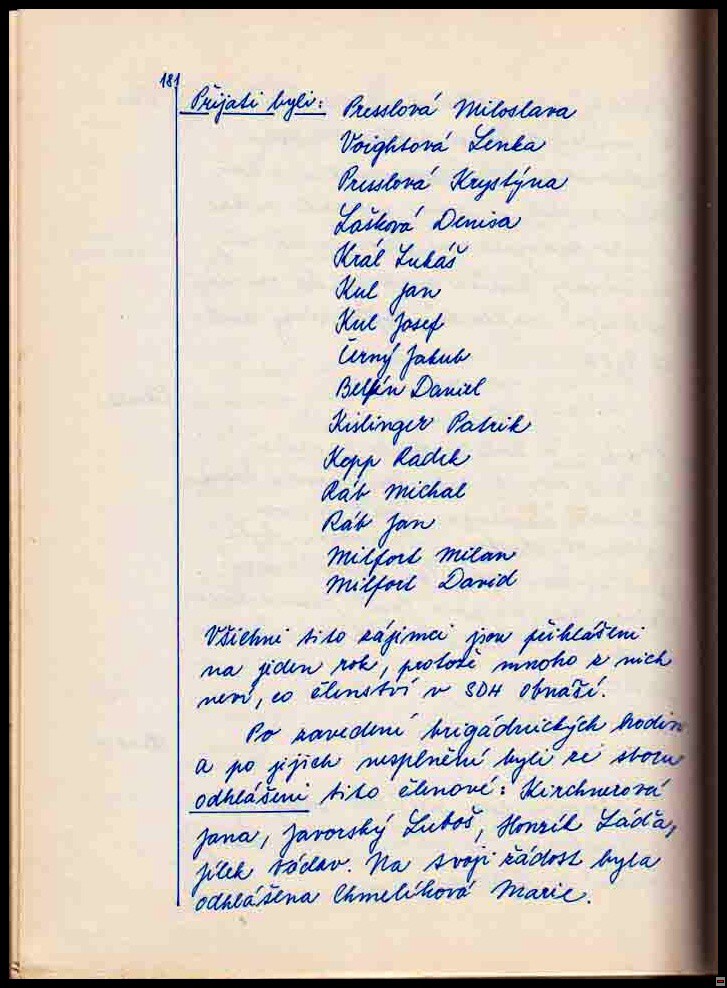 181
Přijati byli: Presslová Miloslava
Voightová Lenka
Presslová Krystýna
Lašková Denisa
Král Lukáš
Kul Jan
Kul Josef
Černý Jakub
Belfín Daniel
Kislinger Patrik
Kopp Radek
Ráb Michal
Ráb Jan
Milfort Milan
Milfort David
Všichni tito zájimci jsou přihlášeni
na jeden rok, protože mnoho z nich
neví, co členství v SDH obnáší.
Po zavedení brigádnických hodin
a po jejich nesplnění byli ze sboru
odhlášeni tito členové: Kirchnerová
Jana, Javorský Luboš, Honzík Láďa,
Jílek Václav. Na svoji žádost byla
odhlášena Chmelíková Marie.